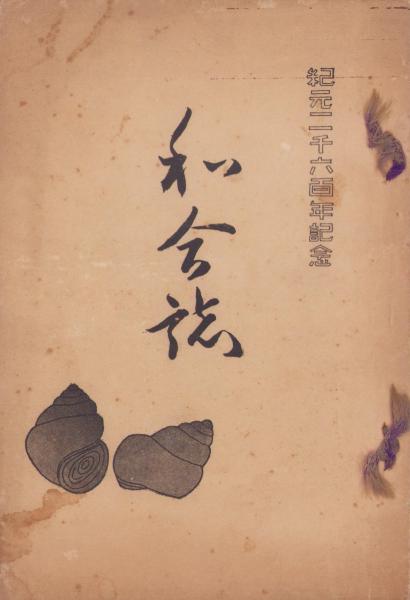 紀元二千六百年記念
和合誌